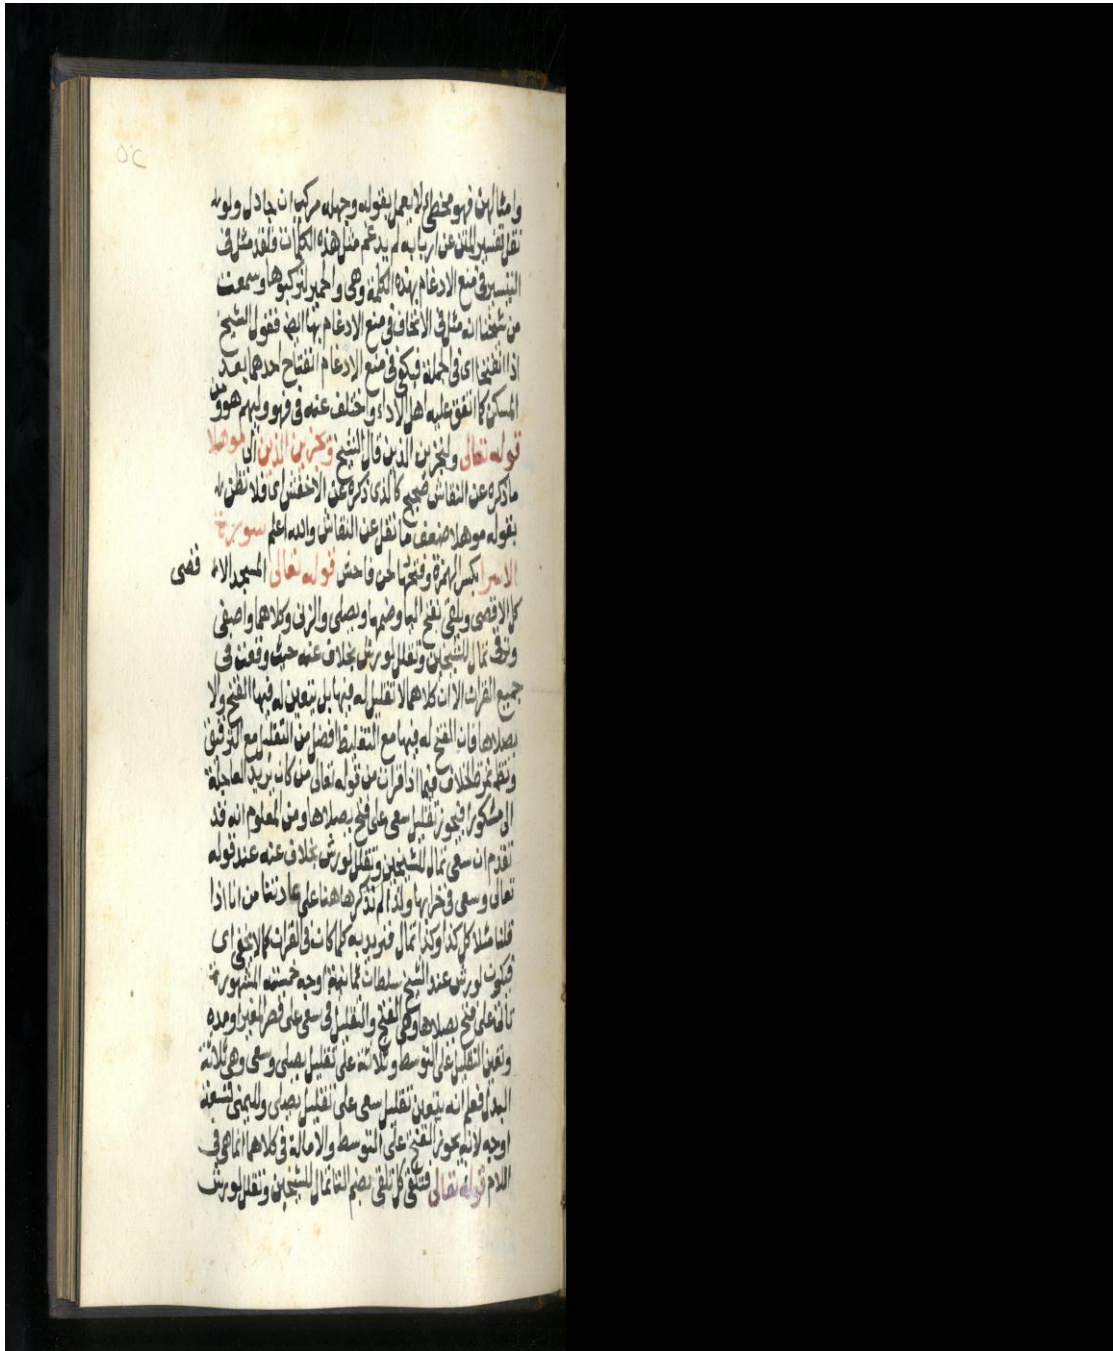 ٥٢
وامثالهن فهو مخطئ لا يعمل بقوله وجهله مركب ان جادل ولو
نقل تفسير المتن عن اربابه لم يدغم مثل هذه الكلمات ولقد مثل في
التيسير في منع الادغام بهذه الكلمة وهي والحمير لتركبوها وسمعت
من شيخنا انه مثل في الاتحاف في منع الادغام بها ايض فقول الشيخ
اذا انفتحا اى في الجملة فيكفى في منع الادغام انفتاح احدهما بعد
المسكن كما اتفق عليه اهل الاداء واختلف عنه في فهو وليهم هو ومن
قوله تعالى ولنجزين الذين قال الشيخ ونجزين الذين الى موهلا
ما ذكره عن النقاش صحيح كالذى ذكره عن الاخفش اى فلا تظن
بقوله موهلا ضعف ما نقل عن النقاش والله اعلم سورة
الاسرا بكسر الهمزة وفتحها لحن فاحش قوله تعالى المسجد الا قصى
كل الاقصى ويلقى بفتح اليا وضمها ويصلى والزنى وكلاهما واصفى
وترقى تمال للشيخين وتقلل لورش بخلاف عنه حيث وقعت في
جميع القران الا ان كلاهما لا تقليل له فيها بل يتعين له فيها الفتح ولا
يصلاها فان الفتح له فيها مع التغليظ افضل من التقليل مع الترقيق
الخلاف فيما اذا قرات من قوله تعالى من كان يريد العاجلة
الى مشكورا فيجوز تقليل سعى على فتح يصلاها ومن المعلوم انه قد
تقدم ان سعى تمال للشيخين وتقلل لورش بخلاف عنه عند قوله
تعالى وسعى في خرابها ولذا لم نذكرها هنا على عادتنا من انا اذا
قلنا مثلا كل كذا وكذا تمال فنريد به كلما كان في القران كما لا يخفى اى
فيكون لورش عند الشيخ سلطان ثمانية اوجه خمسته المشهورة
على فتح يصلاها وهى الفتح والتقليل في سعى على قصر المغير ومده
وتعين التقليل على التوسط وثلاثة على تقليل يصلى وسعى وهى ثلاثة
البدل فعلم انه يتعين تقليل سعى على تقليل يصلى ولليمنى تسعة
اوجه لانه يجوز الفتح على التوسط والامالة في كلاهما انما هى في
اللام قوله تعالى فتلقى كل تلقى بضم التا تمال للشيخين وتقلل لورش